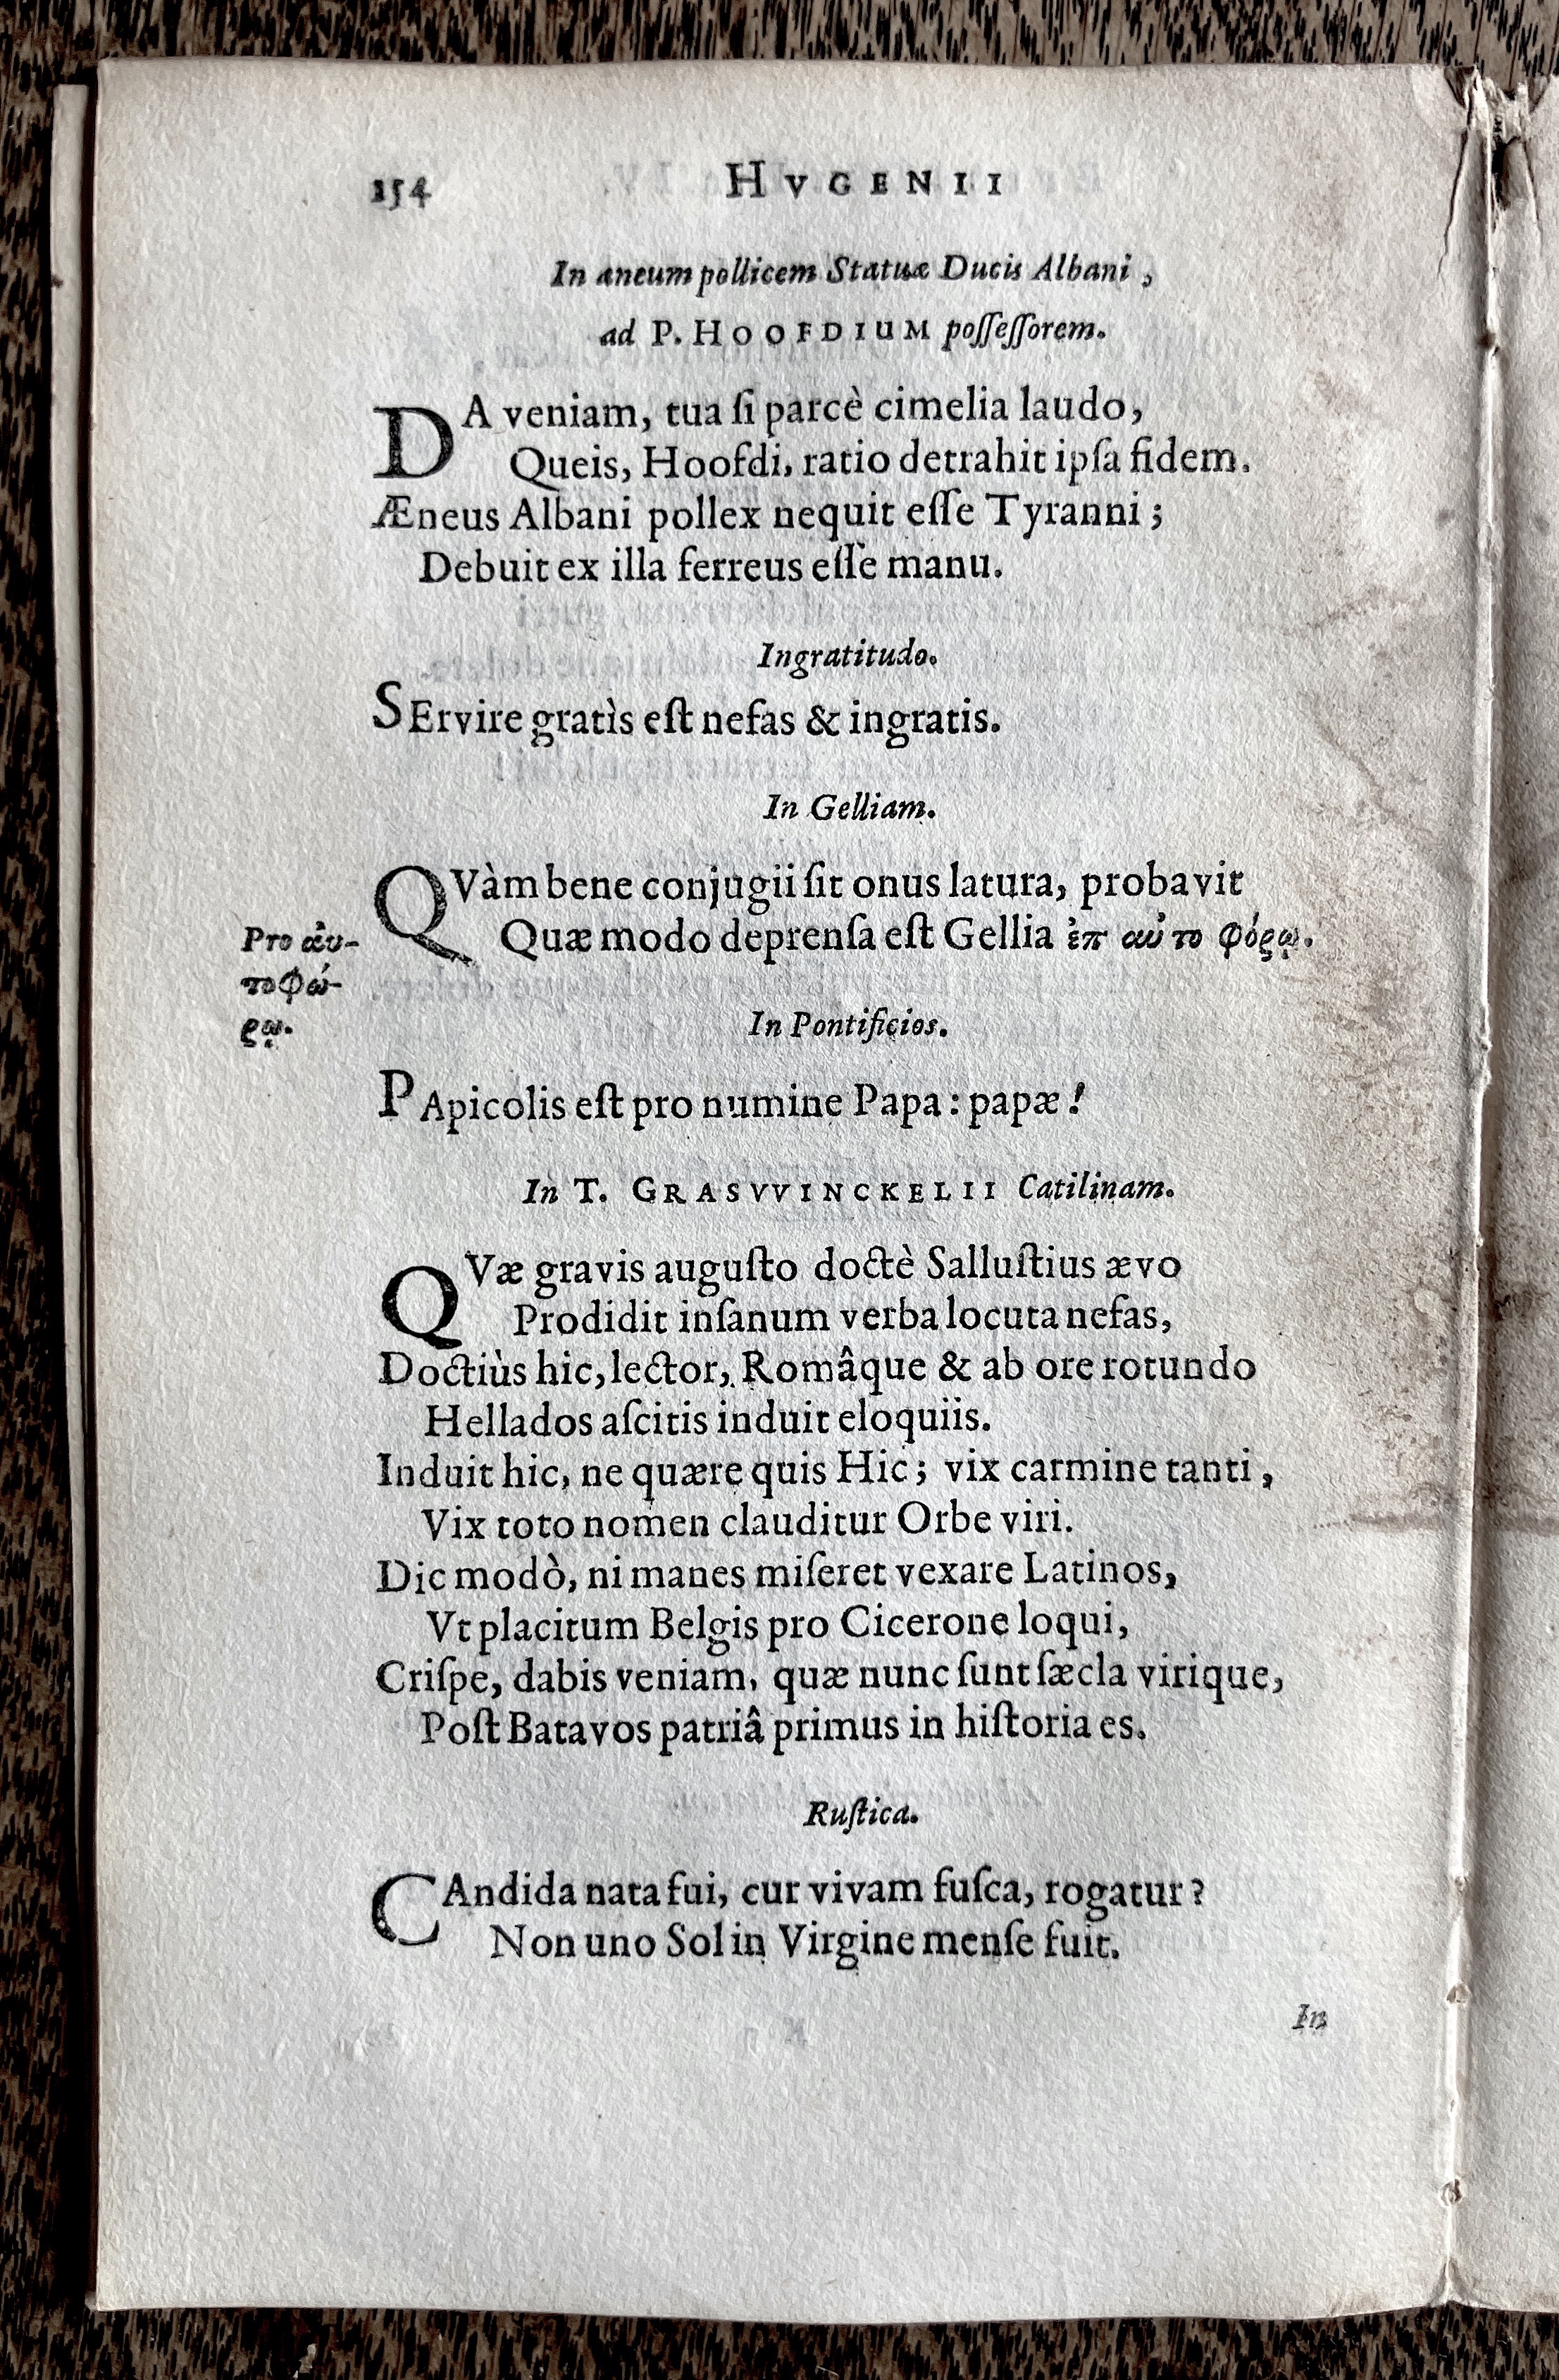 154 HVGENII
In æneum pollicem Statuæ Ducis Albani,
ad P. HOOFDIUM poſſeſſorem.
DA veniam, tua ſi parcè cimelia laudo,
Queis, Hoofdi, ratio detrahit ipſa fidem.
Æneus Albani pollex nequit eſſe Tyranni;
Debuit ex illa ferreus eſſe manu.
Ingratitudo.
SErvire gratìs eſt nefas & ingratis.
In Gelliam.
QVàm bene conjugii ſit onus latura, probavit
Quæ modo deprenſa eſt Gellia ἐπ αὐτο φόρῳ.
Pro αὐ-
τοφώ-
ρῳ.
In Pontificios.
PApicolis eſt pro numine Papa: papæ!
In T. GRASVVINCKELII Catilinam.
QVæ gravis auguſto doctè Salluſtius ævo
Prodidit inſanum verba locuta nefas,
Doctiùs hic, lector, Româque & ab ore rotundo
Hellados aſcitis induit eloquiis.
Induit hic, ne quære quis Hic; vix carmine tanti,
Vix toto nomen clauditur Orbe viri.
Dic modò, ni manes miſeret vexare Latinos,
Vt placitum Belgis pro Cicerone loqui,
Criſpe, dabis veniam, quæ nunc ſunt ſæcla virique,
Poſt Batavos patriâ primus in hiſtoria es.
Ruſtica.
CAndida nata fui, cur vivam fuſca, rogatur?
Non uno Sol in Virgine menſe fuit.
In